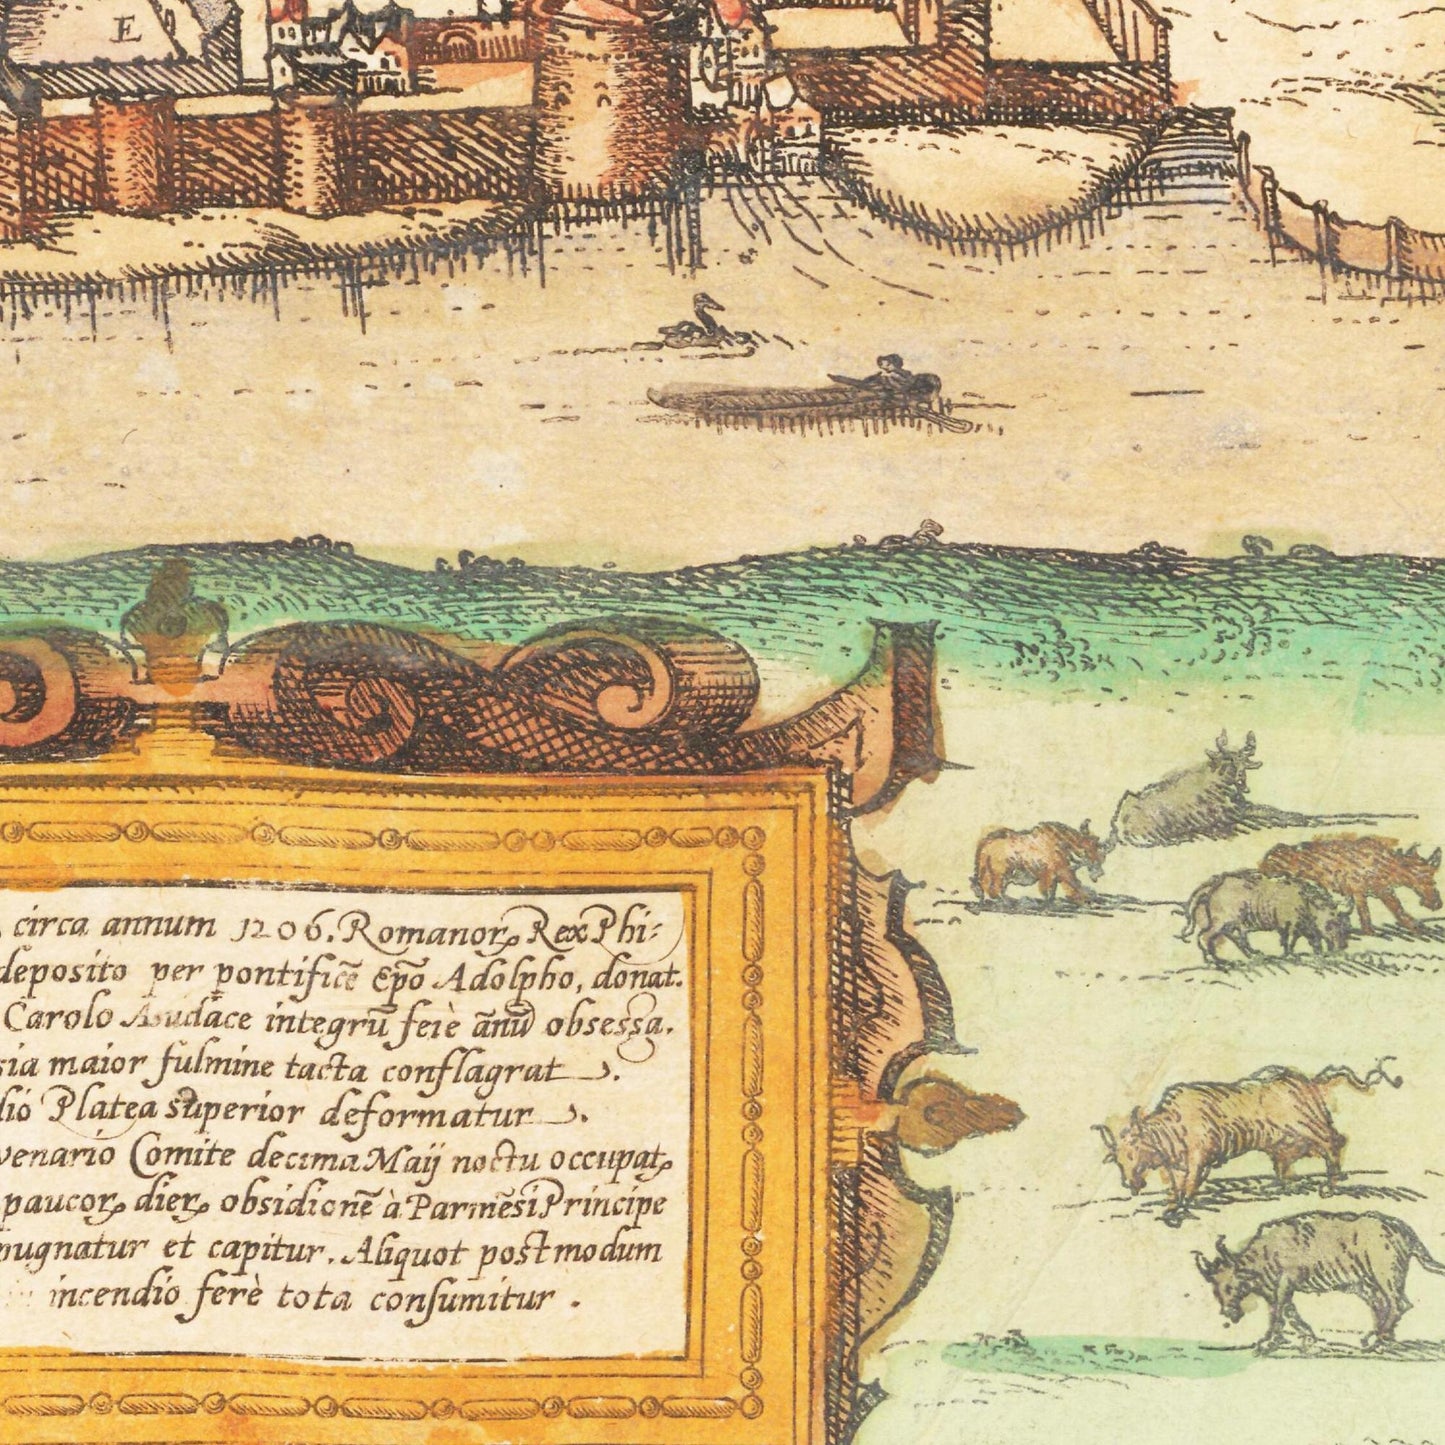 E
circa annum 1206. Romanorꝝ Rex Phi-
deposito per pontificē Epō Adolpho, donat.
Carolo Audace integrū ferè ānū obsessa.
sia maior fulmine tacta conflagrat.
dio Platea superior deformatur.
venario Comite decima Maij noctu occupatꝝ
paucorꝝ dierꝝ obsidionē à Parmēsi Principe
pugnatur et capitur. Aliquot postmodum
incendio ferè tota consumitur.